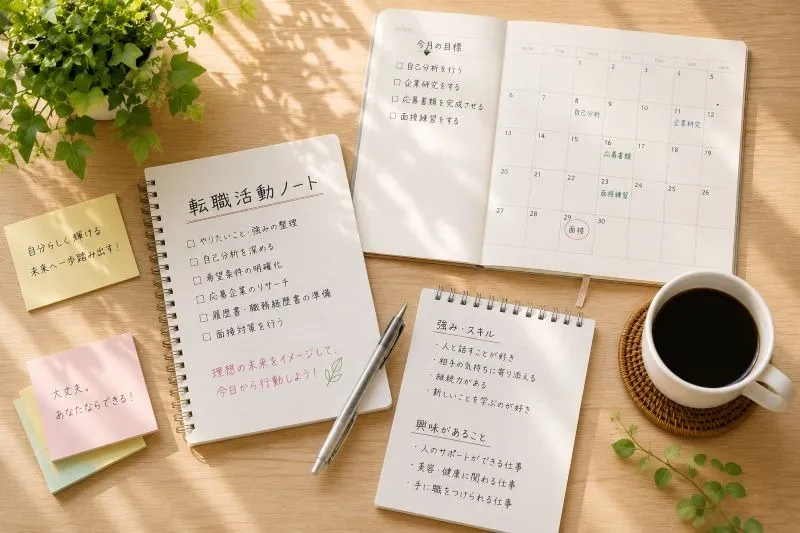 今月の目標
□ 自己分析を行う
□ 企業研究をする
□ 応募書類を完成させる
□ 面接練習をする
1 2 3 4 5
6 7 8 9 10 11 12
自己分析
企業研究
13 14 15 16 17 18 19
応募書類
20 21 22 23 24 25 26
面接練習
27 28 29 30
面接
転職活動ノート
□ やりたいこと・強みの整理
□ 自己分析を深める
□ 希望条件の明確化
□ 応募企業のリサーチ
□ 履歴書・職務経歴書の準備
□ 面接対策を行う
理想の未来をイメージして、
今日から行動しよう!
自分らしく輝ける
未来へ一歩踏み出す!
大丈夫。
あなたならできる!
強み・スキル
・人と話すことが好き
・相手の気持ちに寄り添える
・継続力がある
・新しいことを学ぶのが好き
興味があること
・人のサポートができる仕事
・美容・健康に関わる仕事
・手に職をつけられる仕事